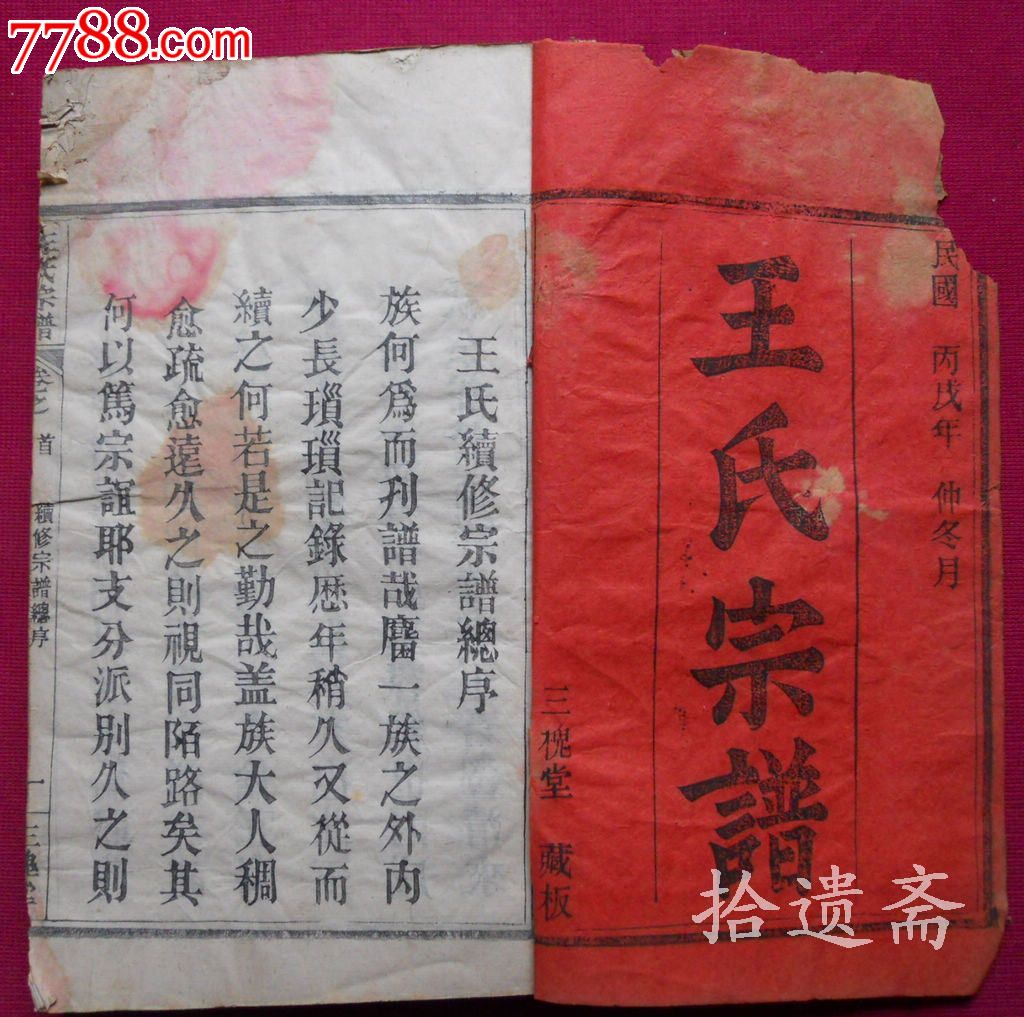 7788.com
民國 丙戌年 仲冬月
王氏宗譜
三槐堂 藏板
王氏續修宗譜總序
族何爲而刋譜哉廬一族之外內
少長瑣瑣記錄歷年稍久又從而
續之何若是之勤哉盖族大人稠
愈疏愈遠久之則視同陌路矣其
何以篤宗誼耶支分派別久之則
王氏宗譜 卷之首 續修宗譜總序 一 三槐堂
拾遗斋